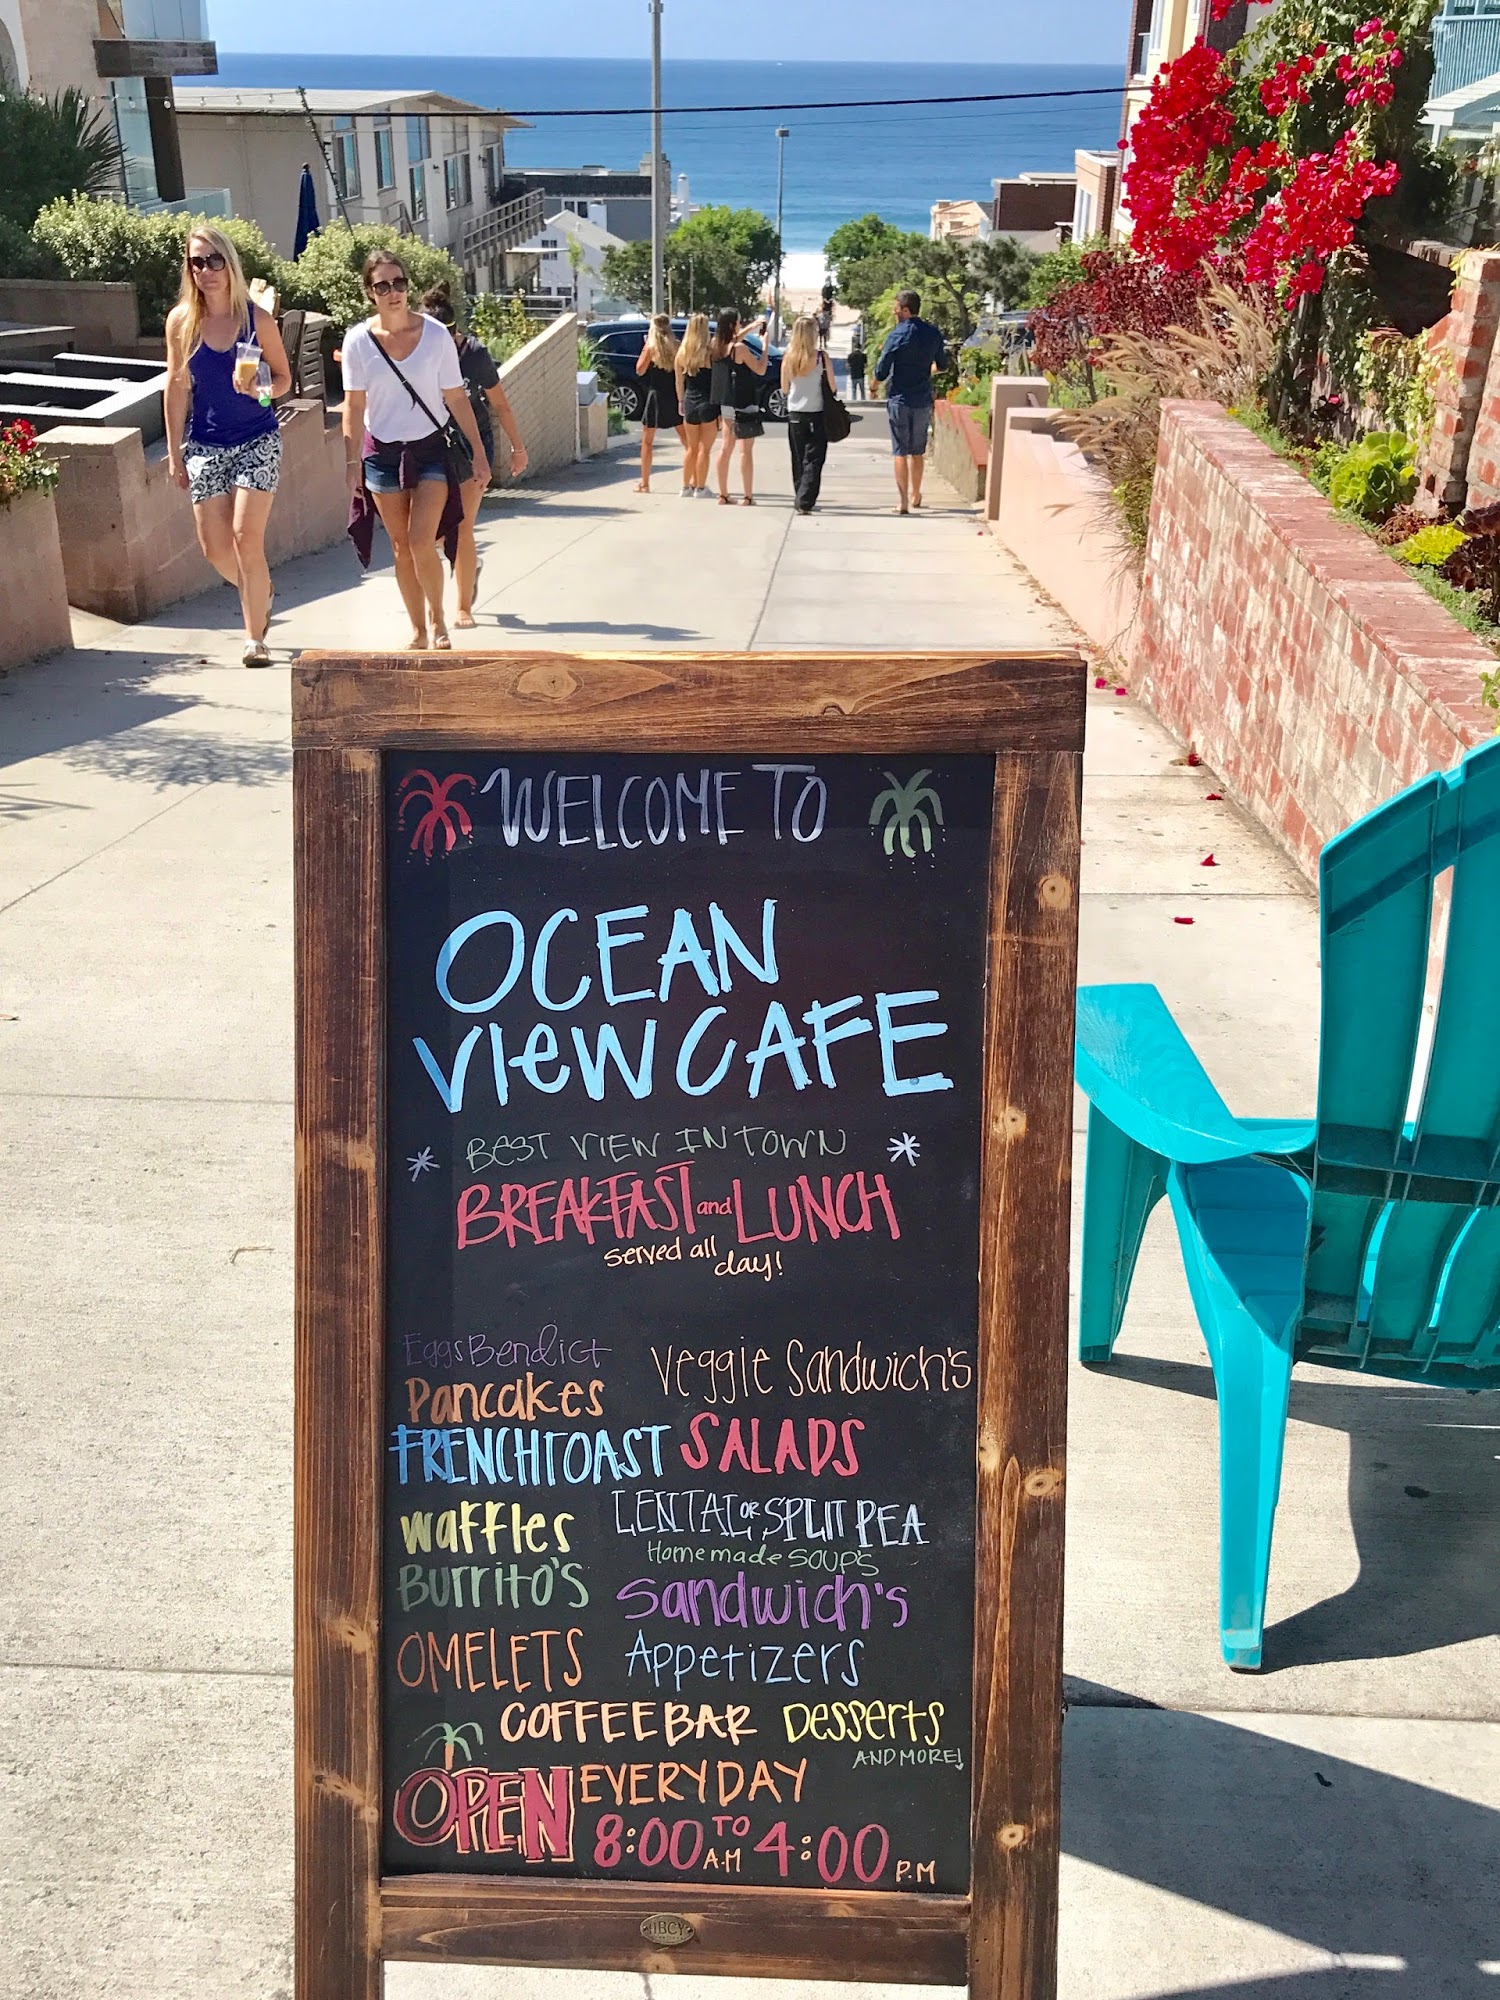 WELCOME TO
OCEAN
VIEW CAFE
BEST VIEW IN TOWN
BREAKFAST and LUNCH
served all
day!
Eggs Bendict
Pancakes
FRENCH TOAST
Waffles
Burrito's
OMELETS
Veggie Sandwich's
SALADS
LENTAL OR SPLIT PEA
Homemade SOUP'S
Sandwich's
Appetizers
COFFEE BAR Desserts
AND MORE!
OPEN EVERYDAY
8:00 A.M TO 4:00 P.M